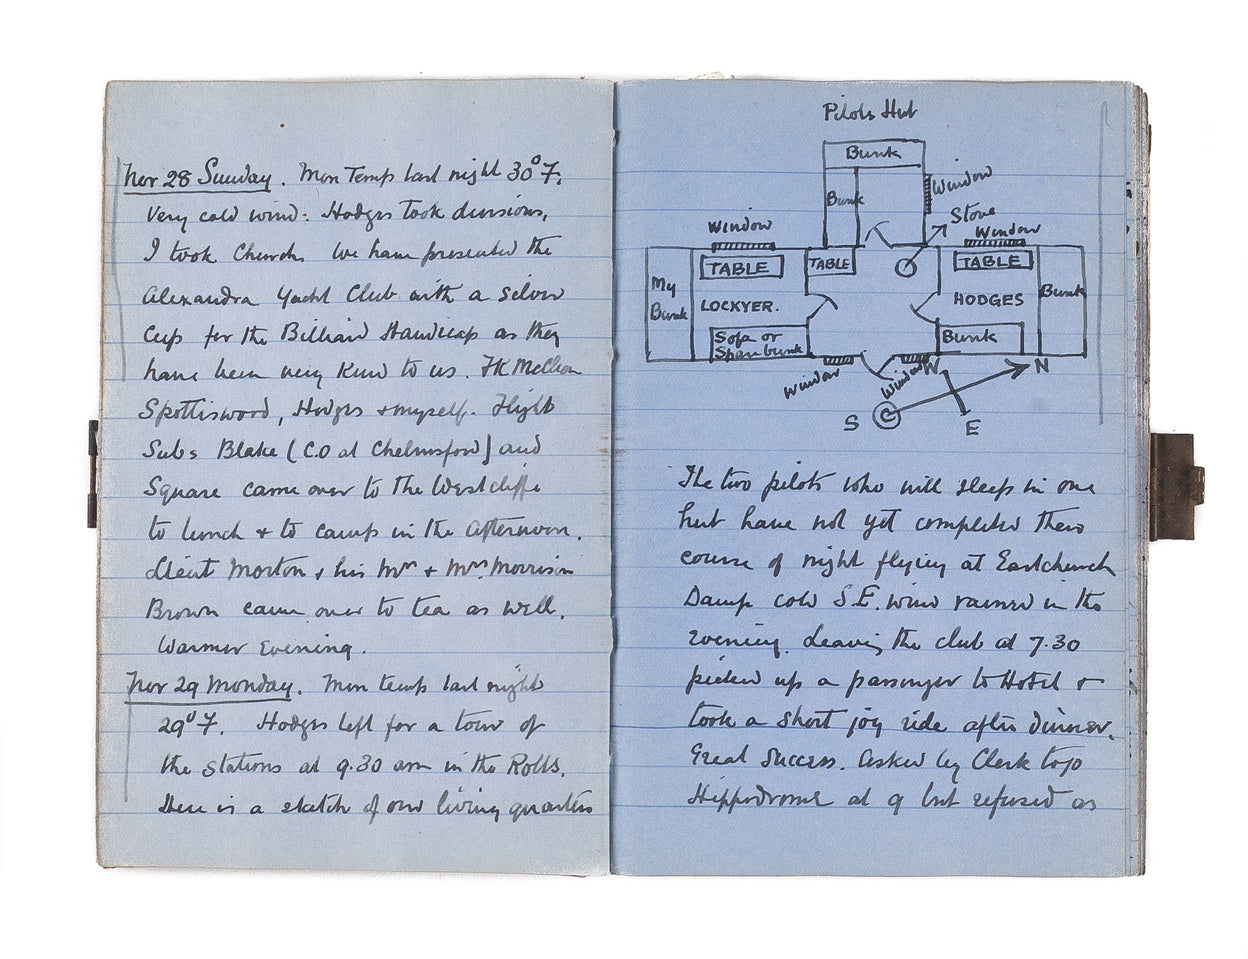 Nov 28 Sunday. Min Temp last night 30° F.
Very cold wind. Hodges took divisions,
I took Church. We have presented the
Alexandra Yacht Club with a silver
Cup for the Billiard Handicap as they
have been very kind to us. Ft
Spottiswood, Hodges + myself. Flight
Subs Blake [C.O at Chelmsford] and
Square came over to the Westcliffe
to lunch + to camp in the afternoon.
Lieut Morton + his Mr + Mrs Morrison
Brown came over to tea as well.
Warmer Evening.
Nov 29 Monday. Min temp last night
29° F. Hodges left for a tour of
the stations at 9.30 am in the Rolls.
Here is a sketch of our living quarters
Pilots Hut
Bunk
Bunk
Window
Stove
Window
Window
TABLE
TABLE
TABLE
My
Bunk
LOCKYER.
HODGES
Bunk
Sofa or
Spare bunk
Bunk
Window
Window
W
N
S
E
The two pilots who will sleep in one
hut have not yet completed their
course of night flying at Eastchurch
Damp cold S.E. wind rained in the
evening. Leaving the club at 7.30
picked up a passenger to Hotel +
took a short joy ride after dinner.
Great Success. Asked by Clerk to go
Hippodrome at 9 but refused as